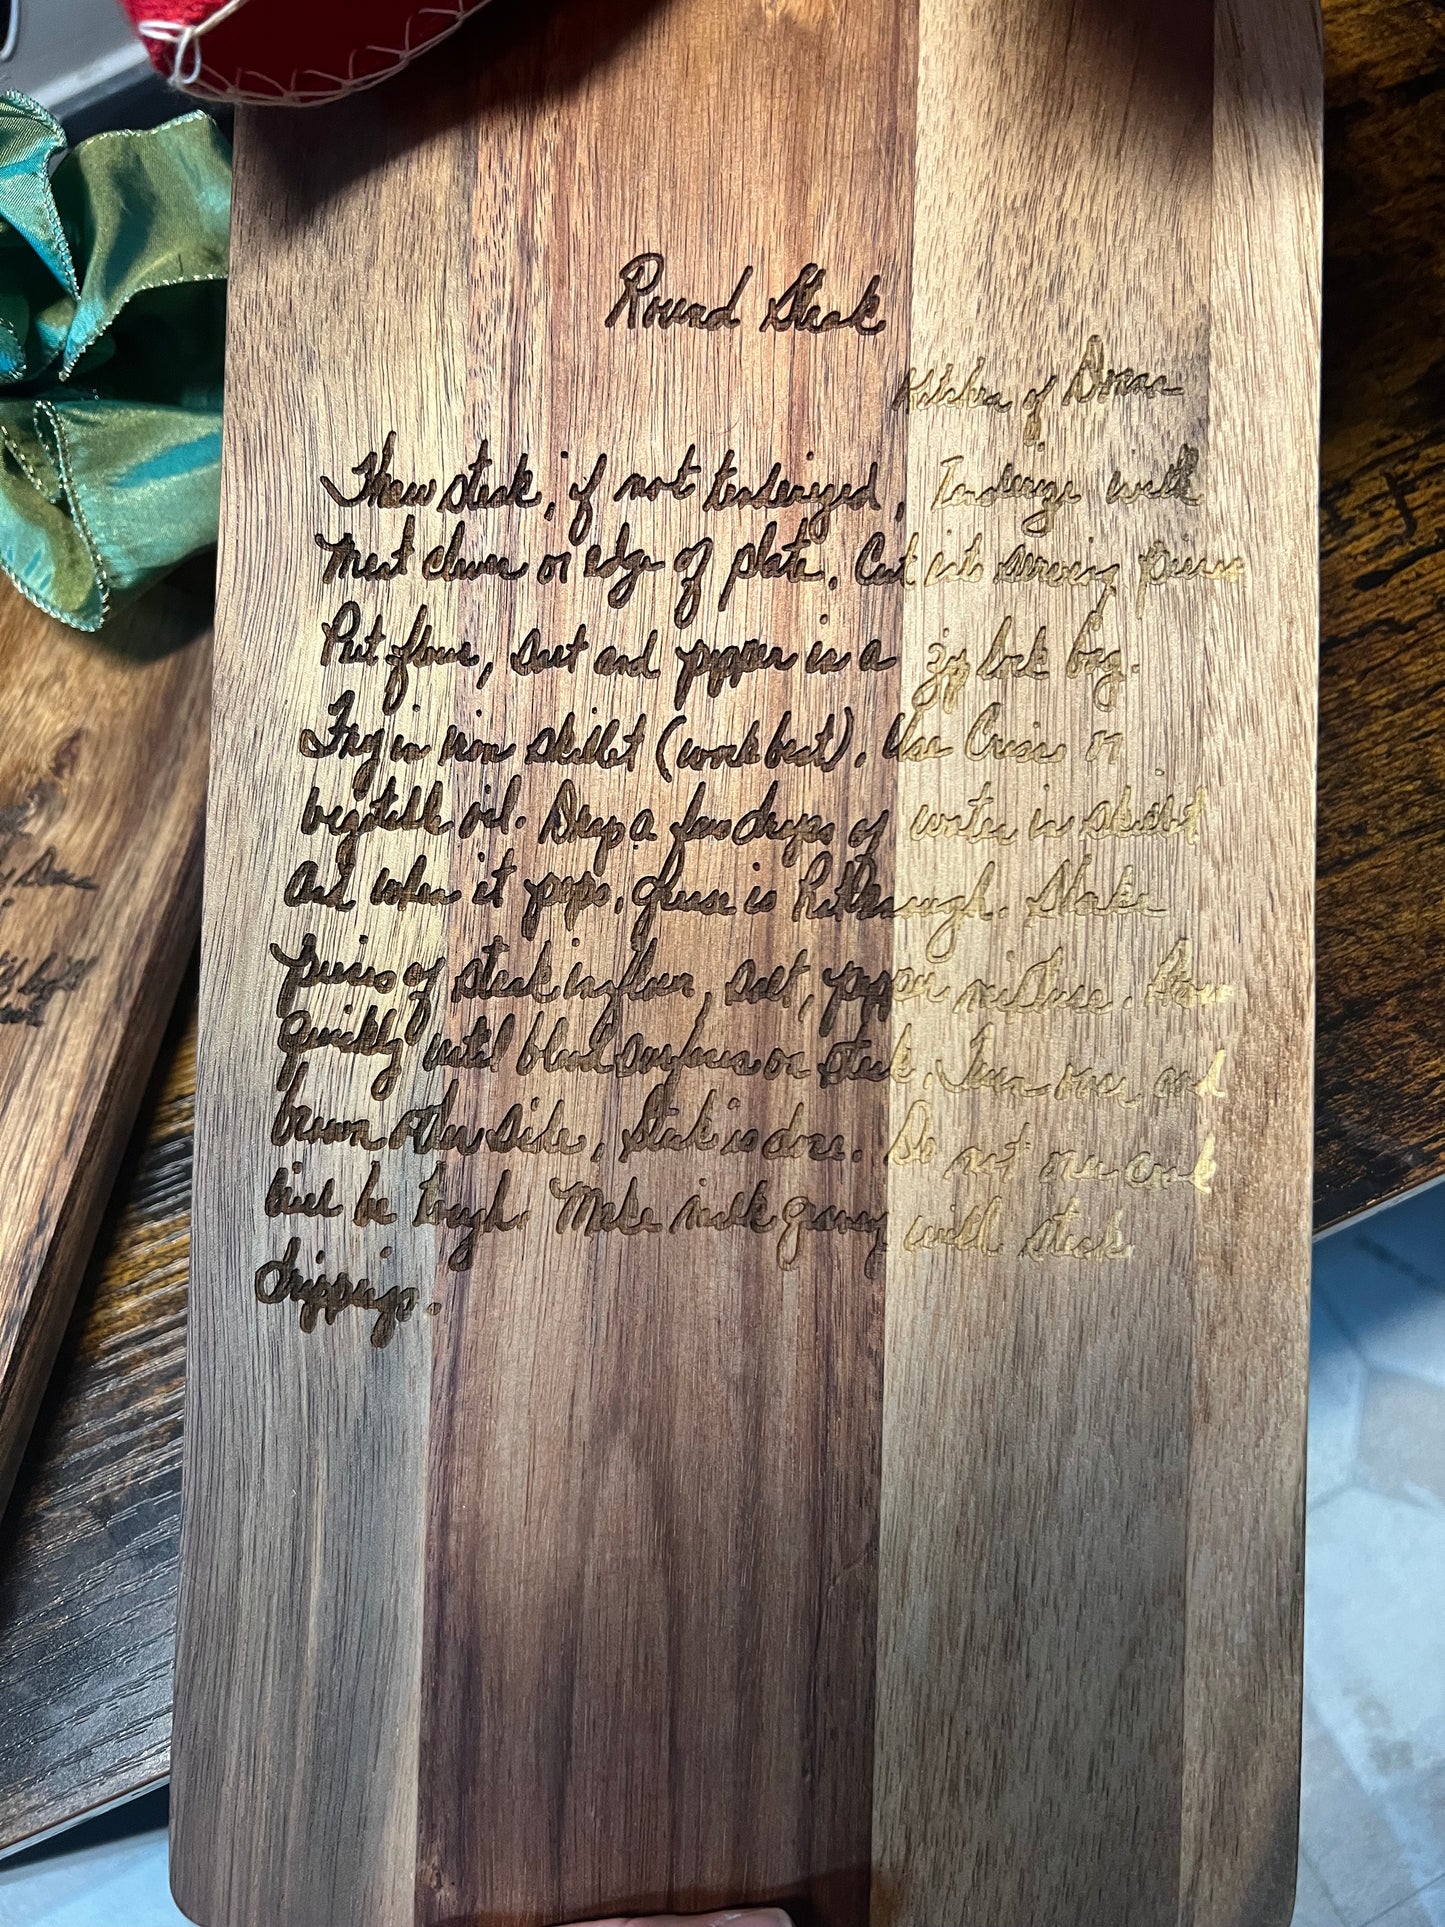 Round Steak
Kitchen of Donna
Thaw steak, if not tenderized, Tenderize with
meat cleaver or edge of plate. Cut into serving pieces
Put flour, salt and pepper in a zip lock bag.
Fry in iron skillet (work best). Use Crisco or
vegetable oil. Drop a few drops of water in skillet
and when it pops, grease is hot enough. Shake
pieces of steak in flour, salt, pepper mixture.
quickly until blood surfaces on steak. Turn over and
brown other side, Steak is done. Do not over cook
will be tough. Make milk gravy with steak
drippings.
Don